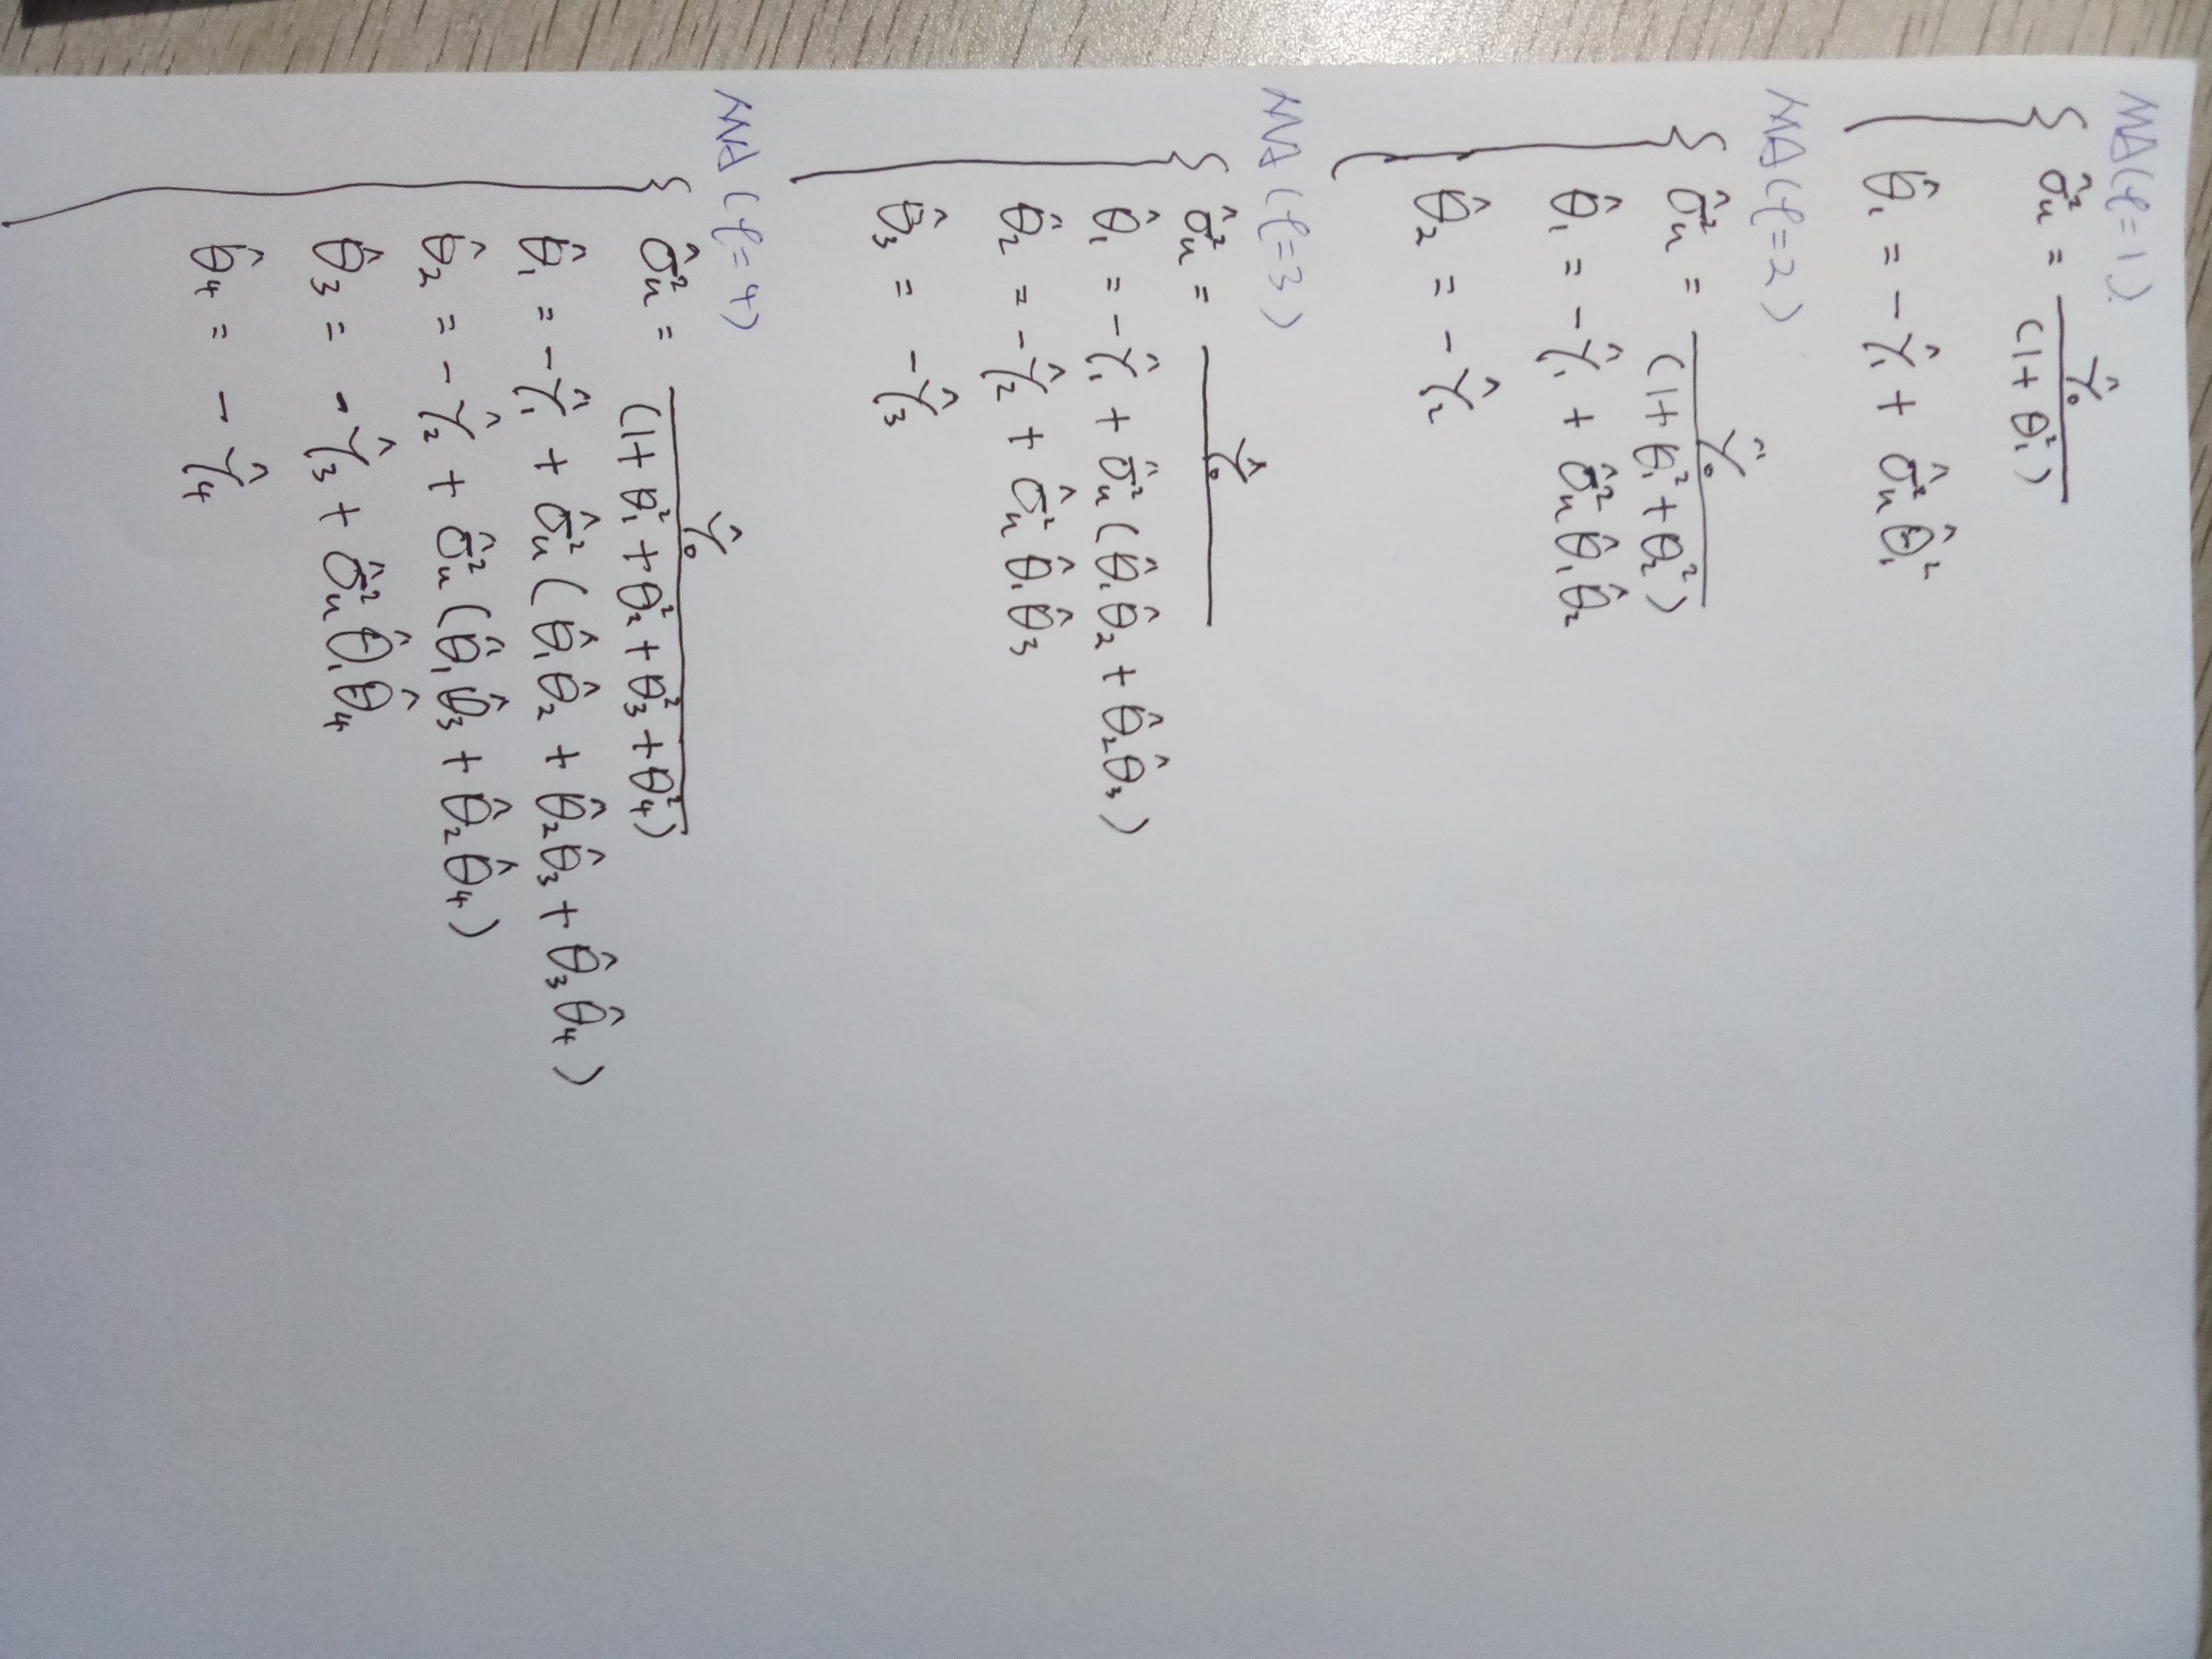 MA(q=1)
σ̂²ᵤ = γ̂₀ / (1+θ₁²)
θ̂₁ = -γ̂₁ + σ̂²ᵤ θ̂₁²
MA(q=2)
σ̂²ᵤ = γ̂₀ / (1+θ₁²+θ₂²)
θ̂₁ = -γ̂₁ + σ̂²ᵤ θ̂₁ θ̂₂
θ̂₂ = -γ̂₂
MA(q=3)
σ̂²ᵤ = γ̂₀
θ̂₁ = -γ̂₁ + σ̂²ᵤ (θ̂₁ θ̂₂ + θ̂₂ θ̂₃)
θ̂₂ = -γ̂₂ + σ̂²ᵤ θ̂₁ θ̂₃
θ̂₃ = -γ̂₃
MA(q=4)
σ̂²ᵤ = γ̂₀ / (1+θ₁²+θ₂²+θ₃²+θ₄²)
θ̂₁ = -γ̂₁ + σ̂²ᵤ (θ̂₁ θ̂₂ + θ̂₂ θ̂₃ + θ̂₃ θ̂₄)
θ̂₂ = -γ̂₂ + σ̂²ᵤ (θ̂₁ θ̂₃ + θ̂₂ θ̂₄)
θ̂₃ = -γ̂₃ + σ̂²ᵤ θ̂₁ θ̂₄
θ̂₄ = -γ̂₄